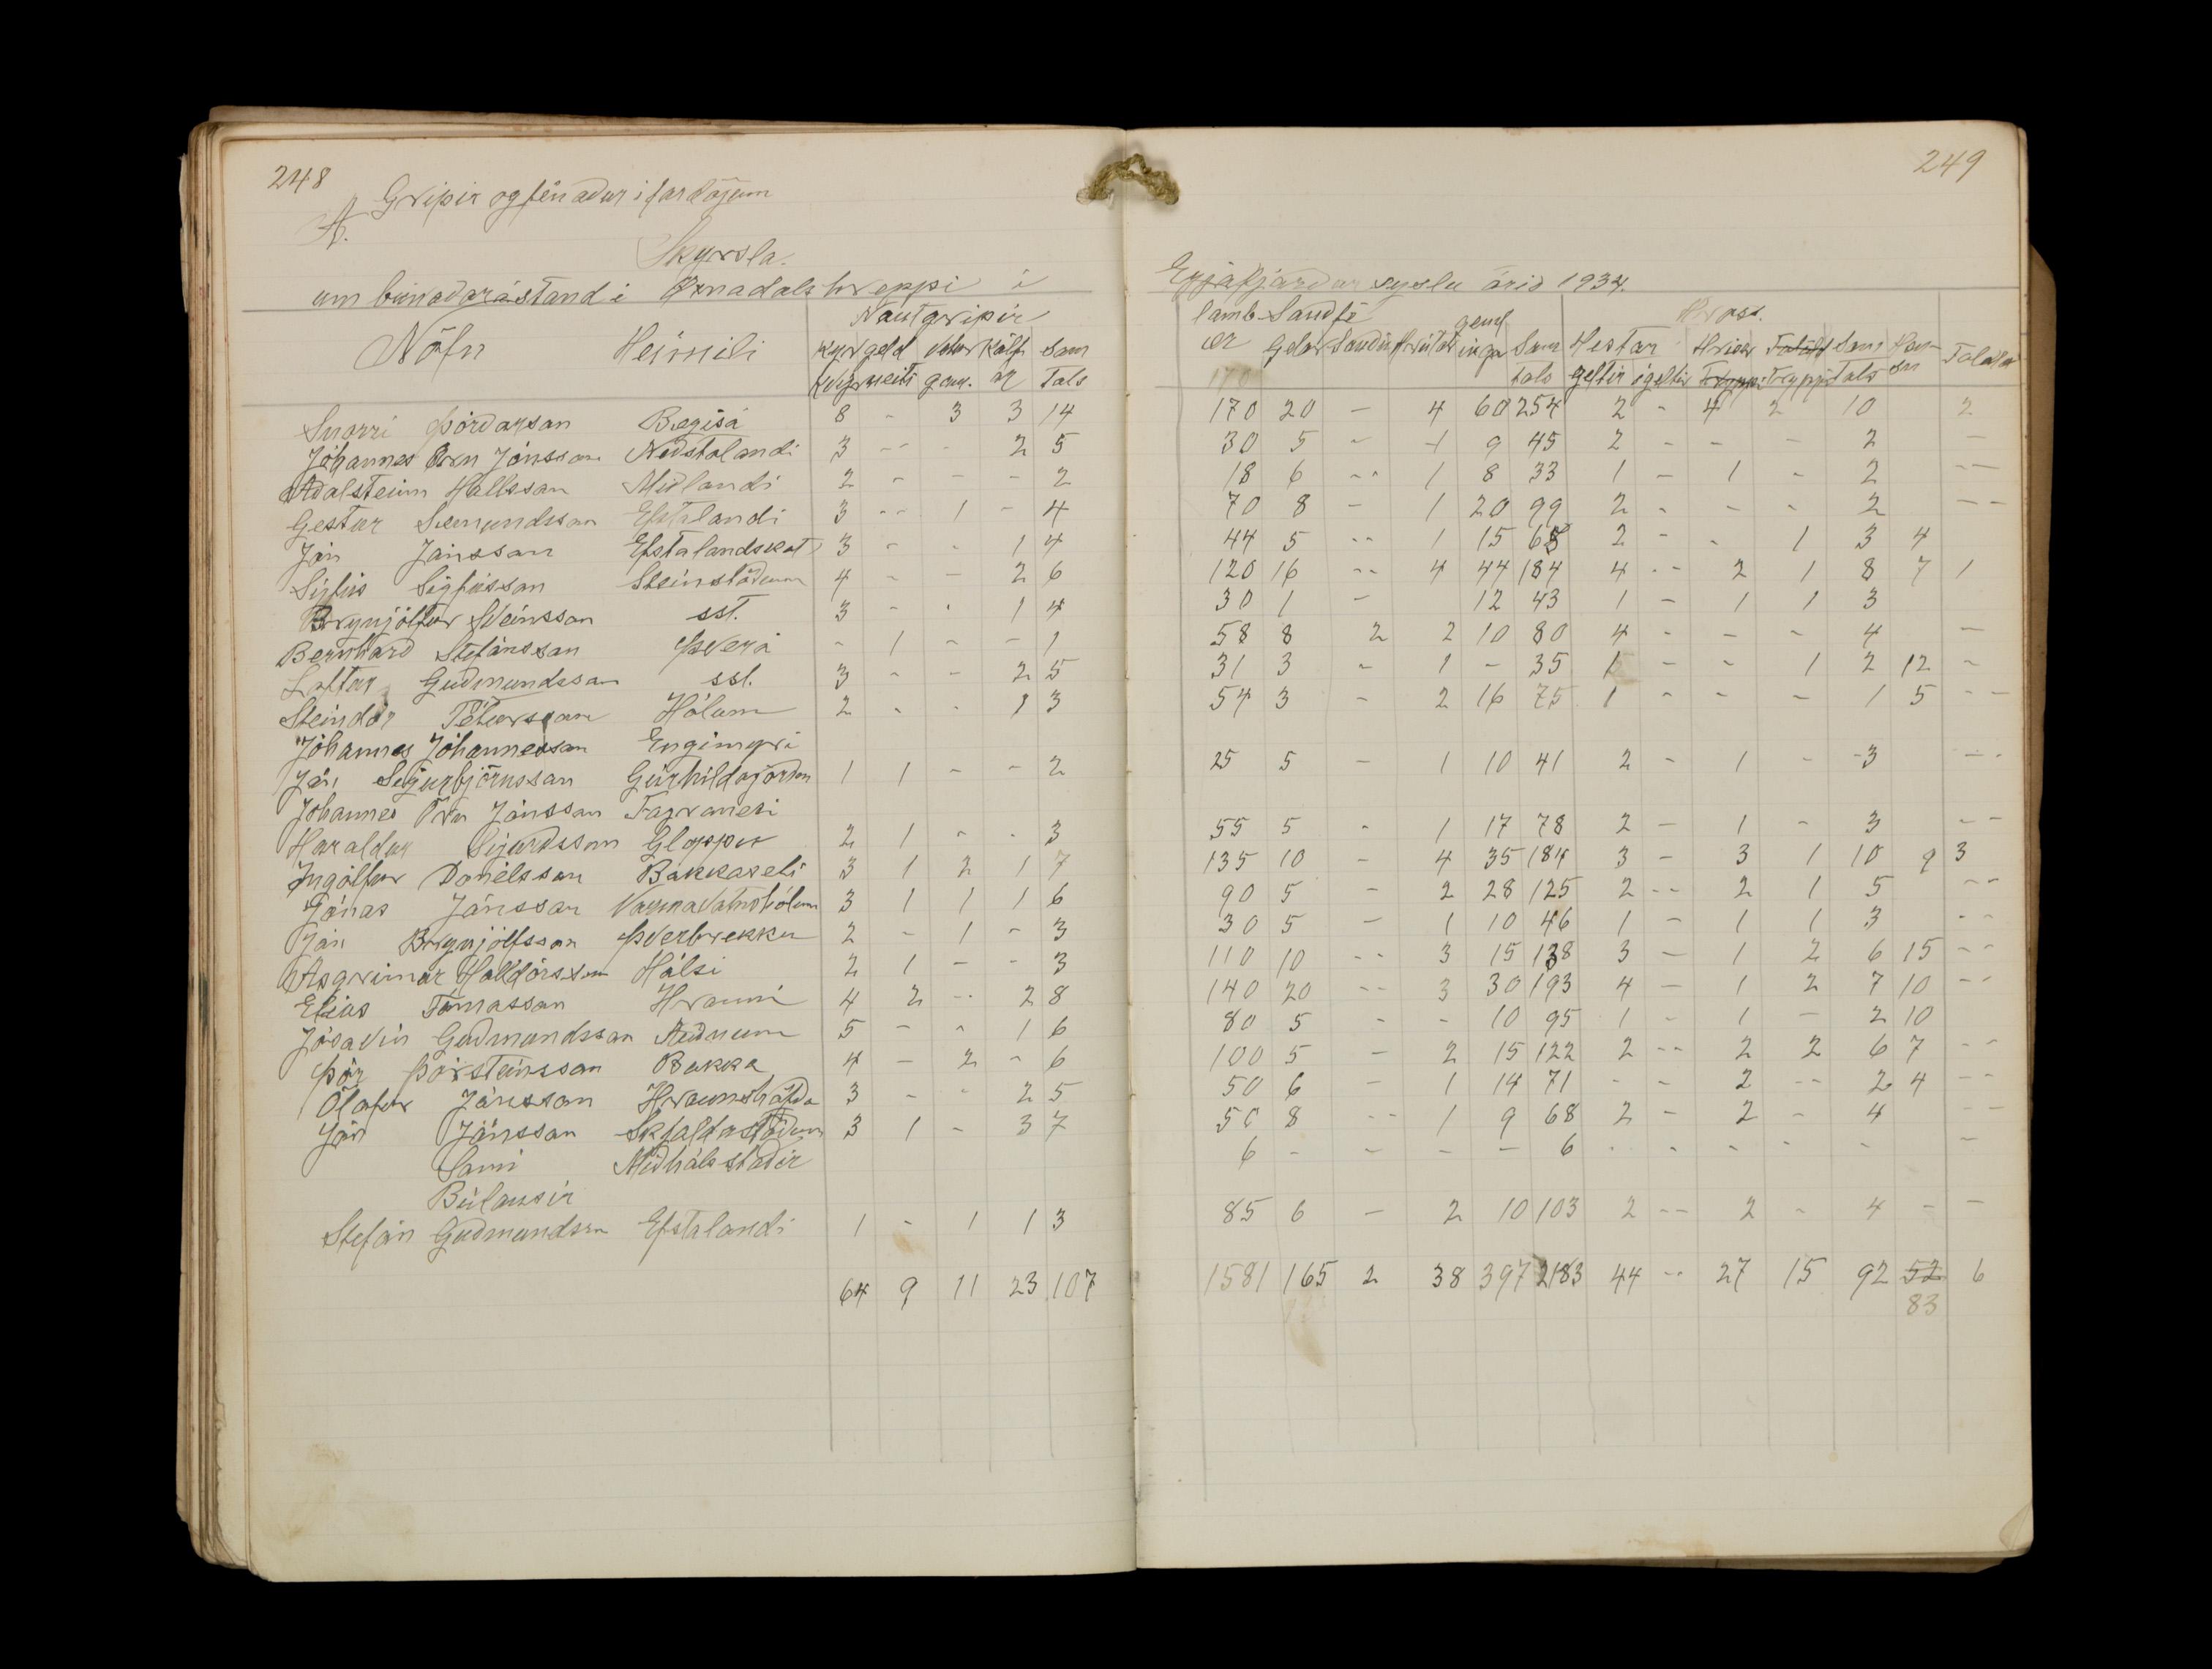 248
Gripir og fénaður í fardögum
A.
Skyrsla.
um búnaðarástand í Öxnadalshreppi í
Nöfn Heimili Nautgripir
Kyr geld Vetur Kálf Sam
Kvígr neiti gaml. ar Tals
Snorri Þórdarsan Bægisá 8 - 3 3 14
Jóhannes Örn Jónsson Neðstalandi 3 - - 2 5
Aðalsteinn Hallssan Miðlandi 2 - - - 2
Gestur Sæmundssan Efstalandi 3 -- 1 - 4
Jón Jónssan Efstalandskot 3 - - 1 4
Sigfús Sigfússan Steinstöðum 4 - - 2 6
Brynjólfur Sveinssan sst. 3 - - 1 4
Bernhard Stefánssan Þverá - 1 - - 1
Loftur Guðmundssan sst. 3 - - 2 5
Steindór Péturssan Hólum 2 - - 1 3
Jóhannes Jóhannessan Engimyri
Jón Sigurbjörnssan Geirhildagörðum 1 1 - - 2
Jóhannes Örn Jónssan Fagranesi
Haraldur Sigurdssan Gloppu 2 1 - - 3
Ingólfur Daníelssan Bakkaseli 3 1 2 1 7
Jónas Jónssan Varmavatnshólum 3 1 1 1 6
Jón Brynjólfssan Þverbrekku 2 - 1 - 3
Asgrimur Halldórsson Hálsi 2 1 - - 3
Elias Tómassan Hrauni 4 2 -- 2 8
Jósavin Guðmundssan Auðnum 5 - - 1 6
Þór Þorsteinssan Bakka 4 - 2 - 6
Ólafur Jónssan Hraunshöfða 3 - - 2 5
Jón Jónssan Skjaldastöðum 3 1 - 3 7
Sami Miðhálsstaðir
Búlausir
Stefán Guðmundssn Efstalandi 1 - 1 1 3
64 9 11 23 107
249
Eyjafjarðar syslu árið 1934.
lamb Sauðfé geml Hross.
ær Geldar Sauðir Hrútar inga Sam Hestar Hrisar Folöld Sam Hæn Folöld
170 tals geltir ógeltir Tryppi Tryppi Tals sn
170 20 - 4 60 254 2 - 4 2 10 2
30 5 - 1 9 45 2 - - - 2 -
18 6 -- 1 8 33 1 - 1 - 2 --
70 8 - 1 20 99 2 - - - 2 --
44 5 -- 1 15 65 2 - - 1 3 4
120 16 -- 4 44 184 4 -- 2 1 8 7 1
30 1 - 12 43 1 - 1 1 3
58 8 2 2 10 80 4 - - - 4 -
31 3 - 1 - 35 1 - - 1 2 12 -
54 3 - 2 16 75 1 - - - 1 5 --
25 5 - 1 10 41 2 - 1 - 3 --
55 5 - 1 17 78 2 - 1 - 3 --
135 10 - 4 35 184 3 - 3 1 10 9 3
90 5 - 2 28 125 2 -- 2 1 5 --
30 5 - 1 10 46 1 - 1 1 3 --
110 10 -- 3 15 138 3 - 1 2 6 15 --
140 20 -- 3 30 193 4 - 1 2 7 10 --
80 5 - - 10 95 1 - 1 - 2 10
100 5 - 2 15 122 2 -- 2 2 6 7 --
50 6 - 1 14 71 - - 2 -- 2 4 --
50 8 -- 1 9 68 2 - 2 - 4 --
6 - - - - 6 - - - - - -
85 6 - 2 10 103 2 -- 2 - 4 - -
1581 165 2 38 397 2183 44 -- 27 15 92 52 6
83